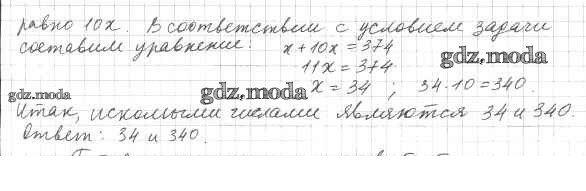 равно 10x. В соответствии с условием задачи
составим уравнение: x + 10x = 374
gdz.moda
11x = 374
gdz.moda gdz.moda x = 34 ; 34·10=340.
Итак, искомыми числами являются 34 и 340.
Ответ: 34 и 340.